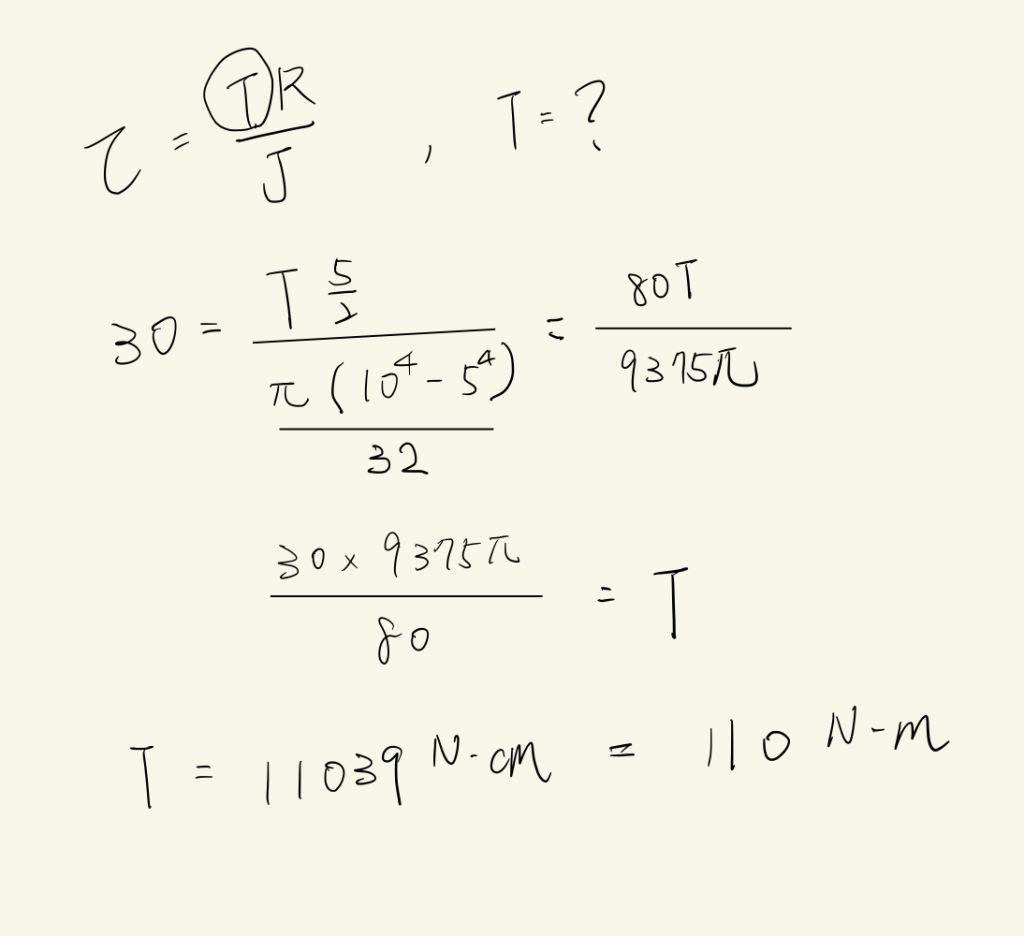 τ = TR/J , T = ?
30 = (T 5/2)/(π(10⁴ - 5⁴)/32) = 80T/9375π
(30 × 9375π)/80 = T
T = 11039 N-cm = 110 N-m